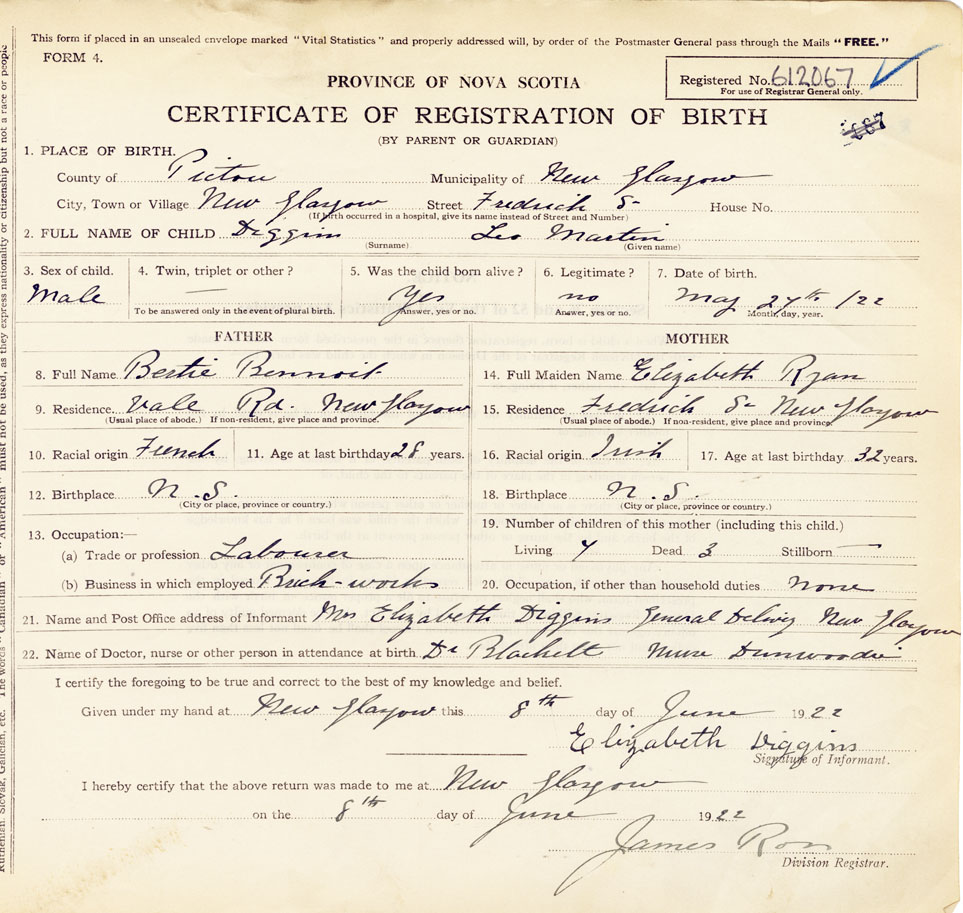 This form if placed in an unsealed envelope marked "Vital Statistics" and properly addressed will, by order of the Postmaster General pass through the Mails "FREE."
FORM 4.
Registered No. 612067
For use of Registrar General only.
PROVINCE OF NOVA SCOTIA
CERTIFICATE OF REGISTRATION OF BIRTH
(BY PARENT OR GUARDIAN)
1. PLACE OF BIRTH.
County of Pictou Municipality of New Glasgow
City, Town or Village New Glasgow Street Fredrick St House No.
(If birth occurred in a hospital, give its name instead of Street and Number)
2. FULL NAME OF CHILD Diggins Leo Martin
(Surname) (Given name)
3. Sex of child. 4. Twin, triplet or other? 5. Was the child born alive? 6. Legitimate? 7. Date of birth.
Male — Yes no May 27th /22
To be answered only in the event of plural birth. Answer, yes or no. Answer, yes or no. Month, day, year.
FATHER MOTHER
8. Full Name Bertie Bennoit 14. Full Maiden Name Elizabeth Ryan
9. Residence Vale Rd. New Glasgow 15. Residence Fredrick St New Glasgow
(Usual place of abode.) If non-resident, give place and province. (Usual place of abode.) If non-resident, give place and province.
10. Racial origin French 11. Age at last birthday 28 years. 16. Racial origin Irish 17. Age at last birthday 32 years.
12. Birthplace N.S. 18. Birthplace N.S.
(City or place, province or country.) (City or place, province or country.)
13. Occupation:— 19. Number of children of this mother (including this child.)
(a) Trade or profession Labourer Living 4 Dead 3 Stillborn —
(b) Business in which employed Brick-works 20. Occupation, if other than household duties none
21. Name and Post Office address of Informant Mrs Elizabeth Diggins General Delivery New Glasgow
22. Name of Doctor, nurse or other person in attendance at birth Dr Blackett Nurse Dunwoodie
I certify the foregoing to be true and correct to the best of my knowledge and belief.
Given under my hand at New Glasgow this 8th day of June 1922
Elizabeth Diggins
Signature of Informant.
I hereby certify that the above return was made to me at New Glasgow
on the 8th day of June 1922
James Ross
Division Registrar.